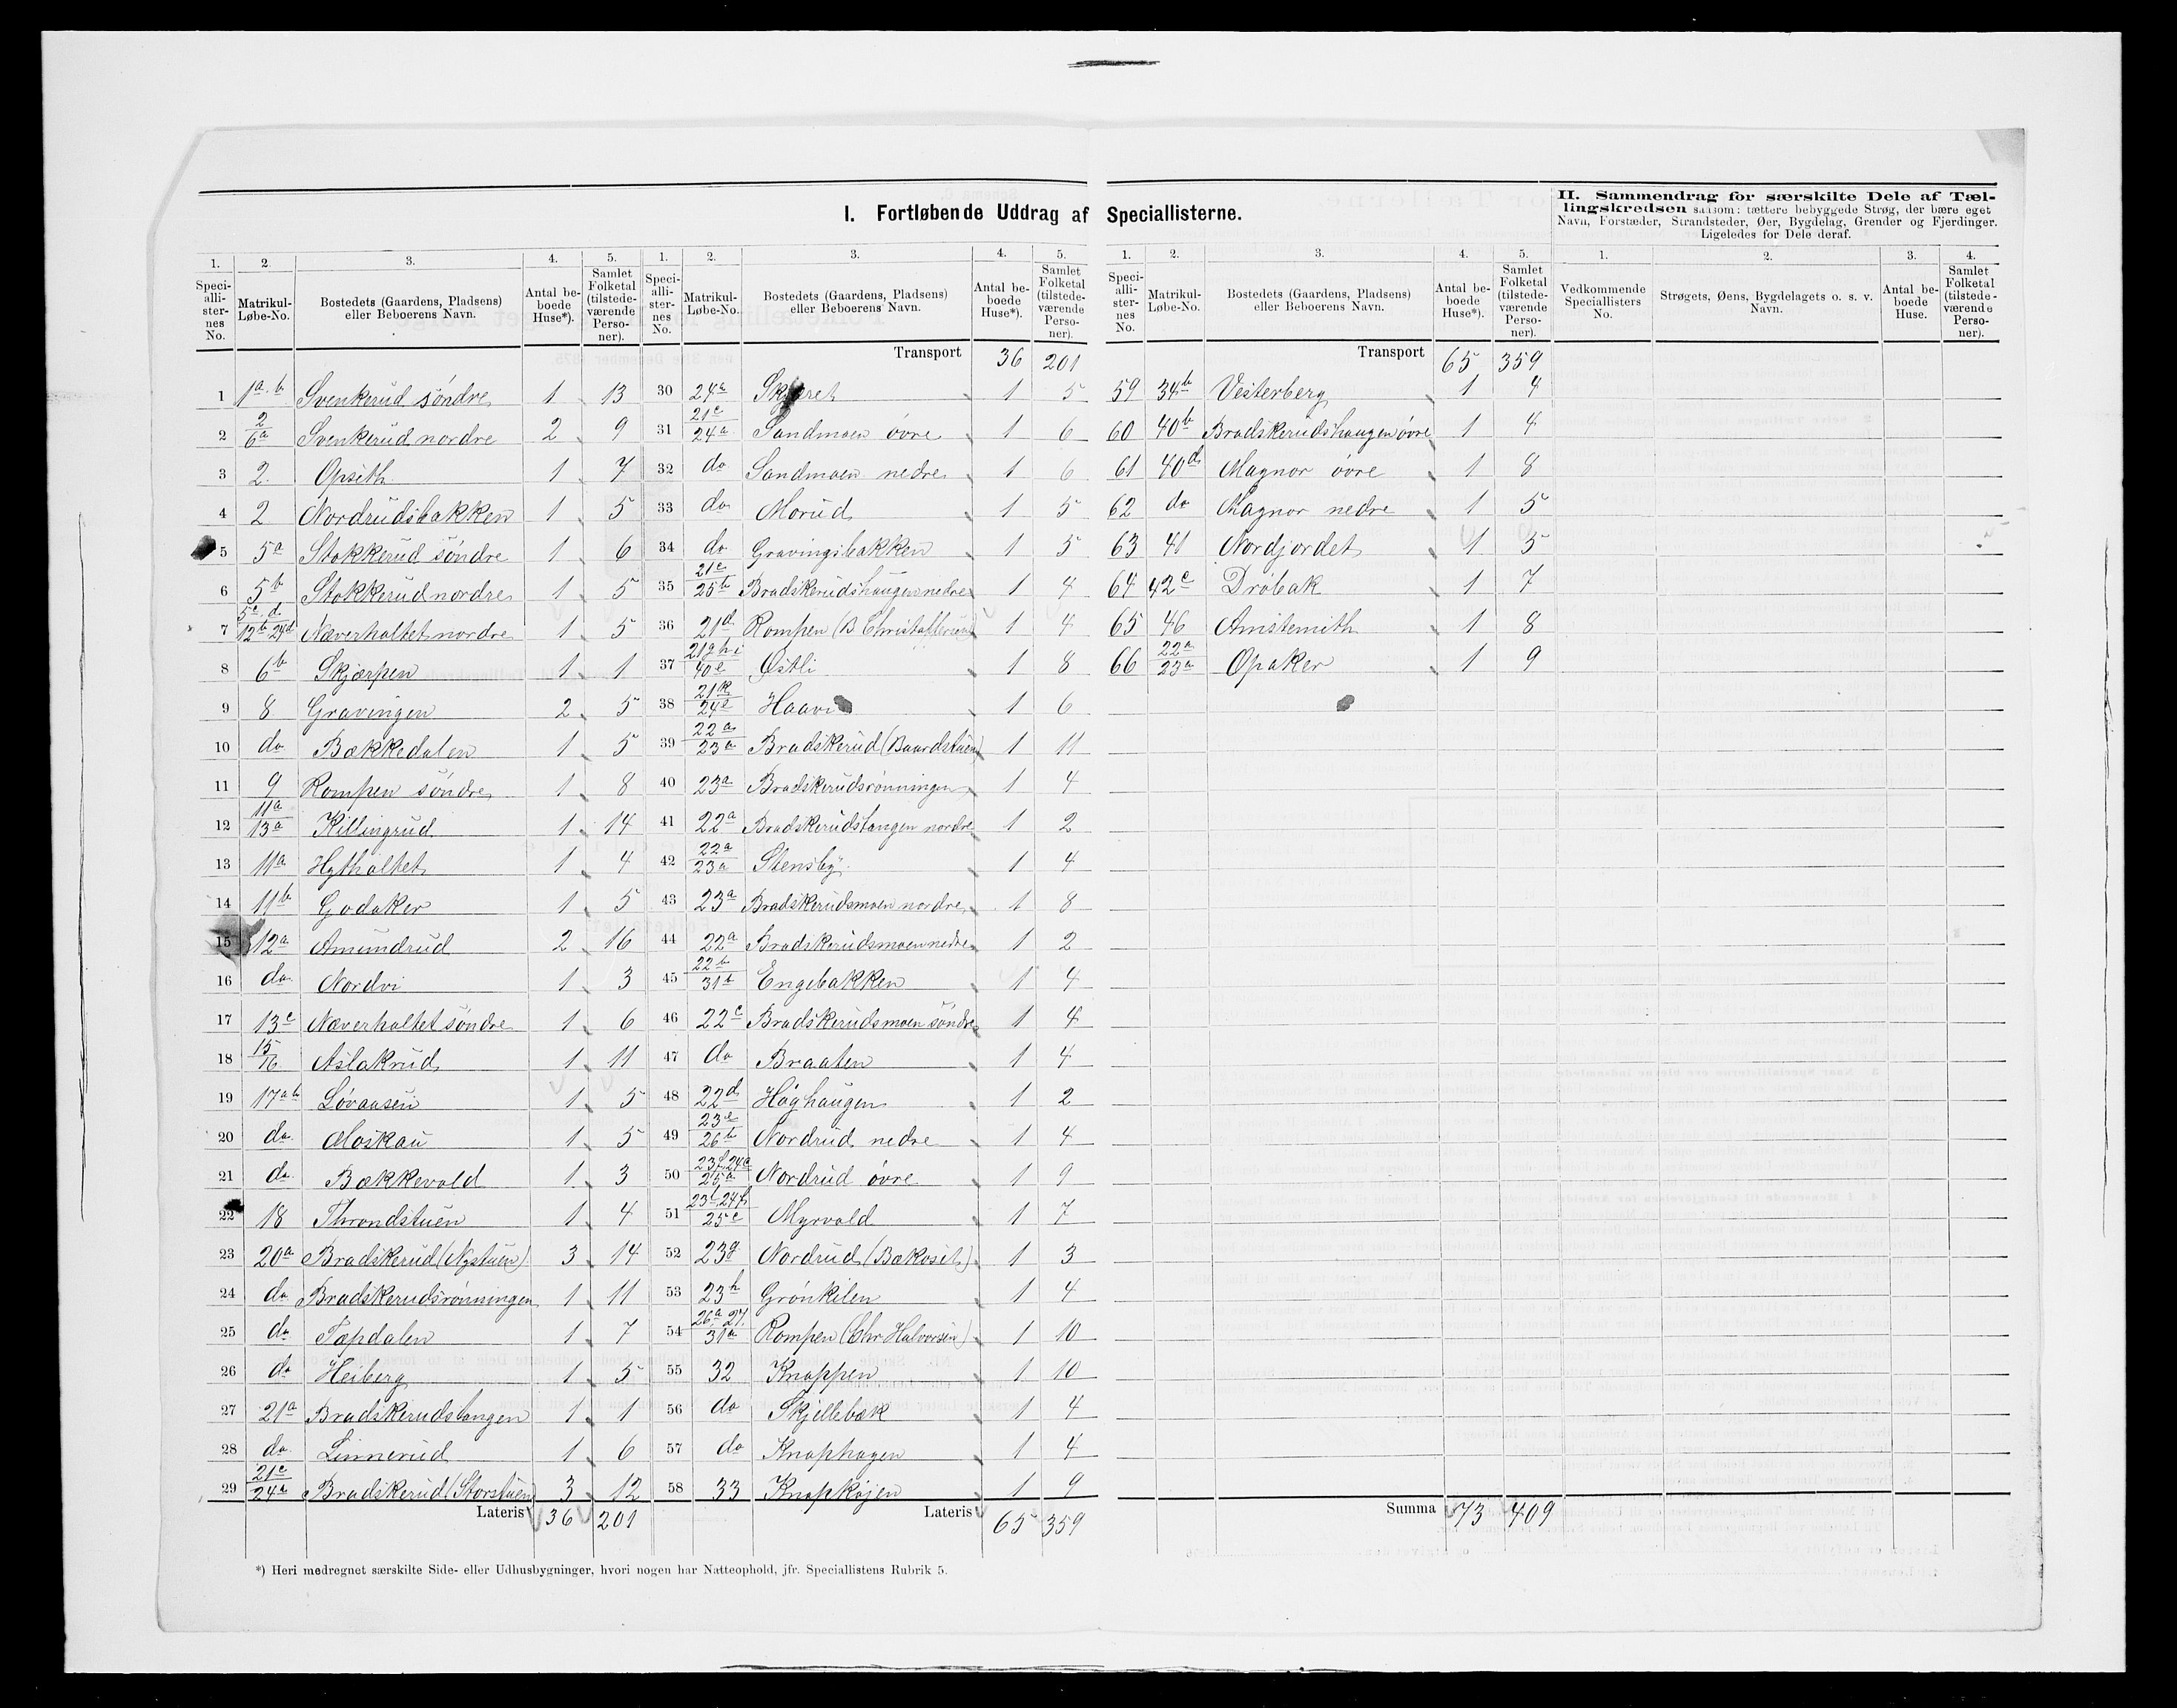 I. Fortløbende Uddrag af Speciallisterne.
II. Sammendrag for særskilte Dele af Tæl-
lingskredsen saasom: tættere bebyggede Strøg, der bære eget
Navn, Forstæder, Strandsteder, Øer, Bygdelag, Grender og Fjerdinger.
Ligeledes for Dele deraf.
1. 2. 3. 4. 5. 1. 2. 3. 4. 5. 1. 2. 3. 4. 5. 1. 2. 3. 4.
Speci-alli-ster-nes No. Matrikul-Løbe-No. Bostedets (Gaardens, Pladsens) eller Beboerens Navn. Antal be-boede Huse*). Samlet Folketal (tilstede-værende Perso-ner).
Speci-alli-ster-nes No. Matrikul-Løbe-No. Bostedets (Gaardens, Pladsens) eller Beboerens Navn. Antal be-boede Huse*). Samlet Folketal (tilstede-værende Perso-ner).
Speci-alli-ster-nes No. Matrikul-Løbe-No. Bostedets (Gaardens, Pladsens) eller Beboerens Navn. Antal be-boede Huse*). Samlet Folketal (tilstede-værende Perso-ner).
Vedkommende Speciallisters No. Strøgets, Øens, Bygdelagets o. s. v. Navn. Antal be-boede Huse. Samlet Folketal (tilstede-værende Perso-ner).
1 1a.b Svenkerud söndre 1 13
2 2/6a Svenkerud nordre 2 9
3 2. Opseth 1 7
4 2 Nordrudsbakken 1 5
5 5a Stokkerud söndre 1 6
6 5b Stokkerud nordre 1 5
7 5c.d/12b 24d Næverholtet nordre 1 5
8 6b Skjærpen 1 1
9 8 Gravingen 2 5
10 do Bækkedalen 1 5
11 9 Rompen söndre 1 8
12 11a/13a Killingrud 1 14
13 11a Hytholtet 1 4
14 11b Godaker 1 5
15 12a Amundrud 2 16
16 do Nordvi 1 3
17 13c Næverholtet söndre 1 6
18 15/16 Aslakrud 1 11
19 17ab Lövaasen 1 5
20 do Moskau 1 5
21 do Bækkevold 1 3
22 18 Throndstuen 1 4
23 20a Bradskerud (Nystuen) 3 14
24 do Bradskerudsrönningen 1 11
25 do Tæpdalen 1 7
26 do Heiberg 1 5
27 21a Bradskerudstangen 1 1
28 do Linnerud 1 6
29 21c/24a Bradskerud (Storstuen) 3 12
Lateris 36 201
Transport 36 201
30 24a 1 5
31 21c/24a Sandmoen övre 1 6
32 do Sandmoen nedre 1 6
33 do Morud 1 5
34 do Gravingsbakken 1 5
35 21c/25b Bradskerudshaugen nedre 1 4
36 21d Rompen (B Christoffersen) 1 4
37 21g h i/40e Østli 1 8
38 21k/24e Haavi 1 6
39 22a/23a Bradskerud (Baardstuen) 1 11
40 23a Bradskerudsrönningen 1 4
41 22a Bradskerudstangen nordre 1 2
42 22a/23a Stensby 1 4
43 23a Bradskerudsmoen nordre 1 8
44 22a Bradskerudsmoen nedre 1 2
45 22b/31b Engebakken 1 4
46 22c Bradskerudsmoen söndre 1 4
47 do Braaten 1 4
48 22d Höghaugen 1 2
49 23e/26b Nordrud nedre 1 4
50 23f.24c/25a Nordrud övre 1 9
51 25c Myrvold 1 7
52 23g Nordrud (Bækoset) 1 3
53 23h Grönkilen 1 4
54 26a 27/31a Rompen (Chr Halvorsen) 1 10
55 32 Knappen 1 10
56 do Skjellebæk 1 4
57 do Knaphagen 1 4
58 33 Knapköjen 1 9
Lateris 65 359
Transport 65 359
59 34b Vesterberg 1 4
60 40b Bradskerudshaugen övre 1 4
61 40d Magnor övre 1 8
62 do Magnor nedre 1 5
63 41 Nordjordet 1 5
64 42c Dröbak 1 7
65 46 Amstemith 1 8
66 22a/23a Opaker 1 9
Summa 73 409
*) Heri medregnet særskilte Side- eller Udhusbygninger, hvori nogen har Natteophold, jfr. Speciallistens Rubrik 5.